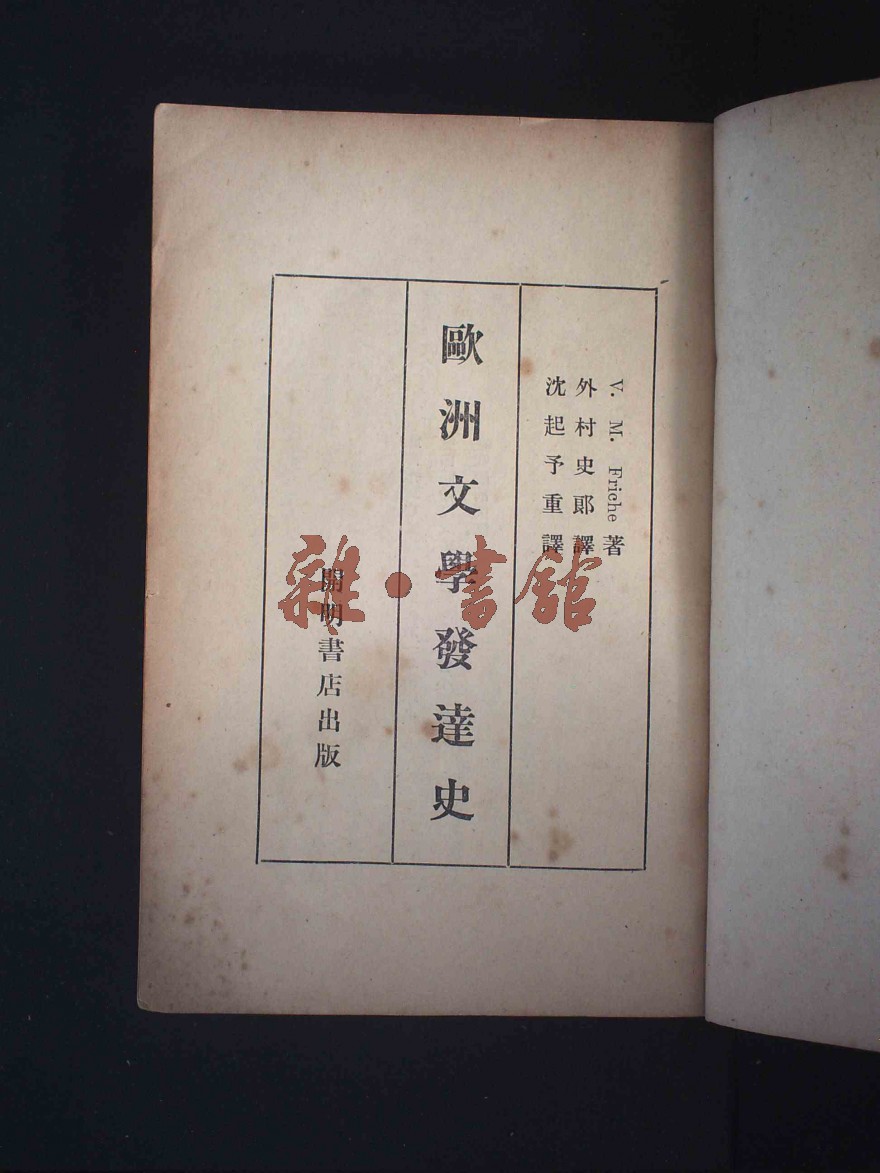 V. M. Friche 著
外村史郞譯
沈起予重譯
歐洲文學發達史
開明書店出版
雜·書館